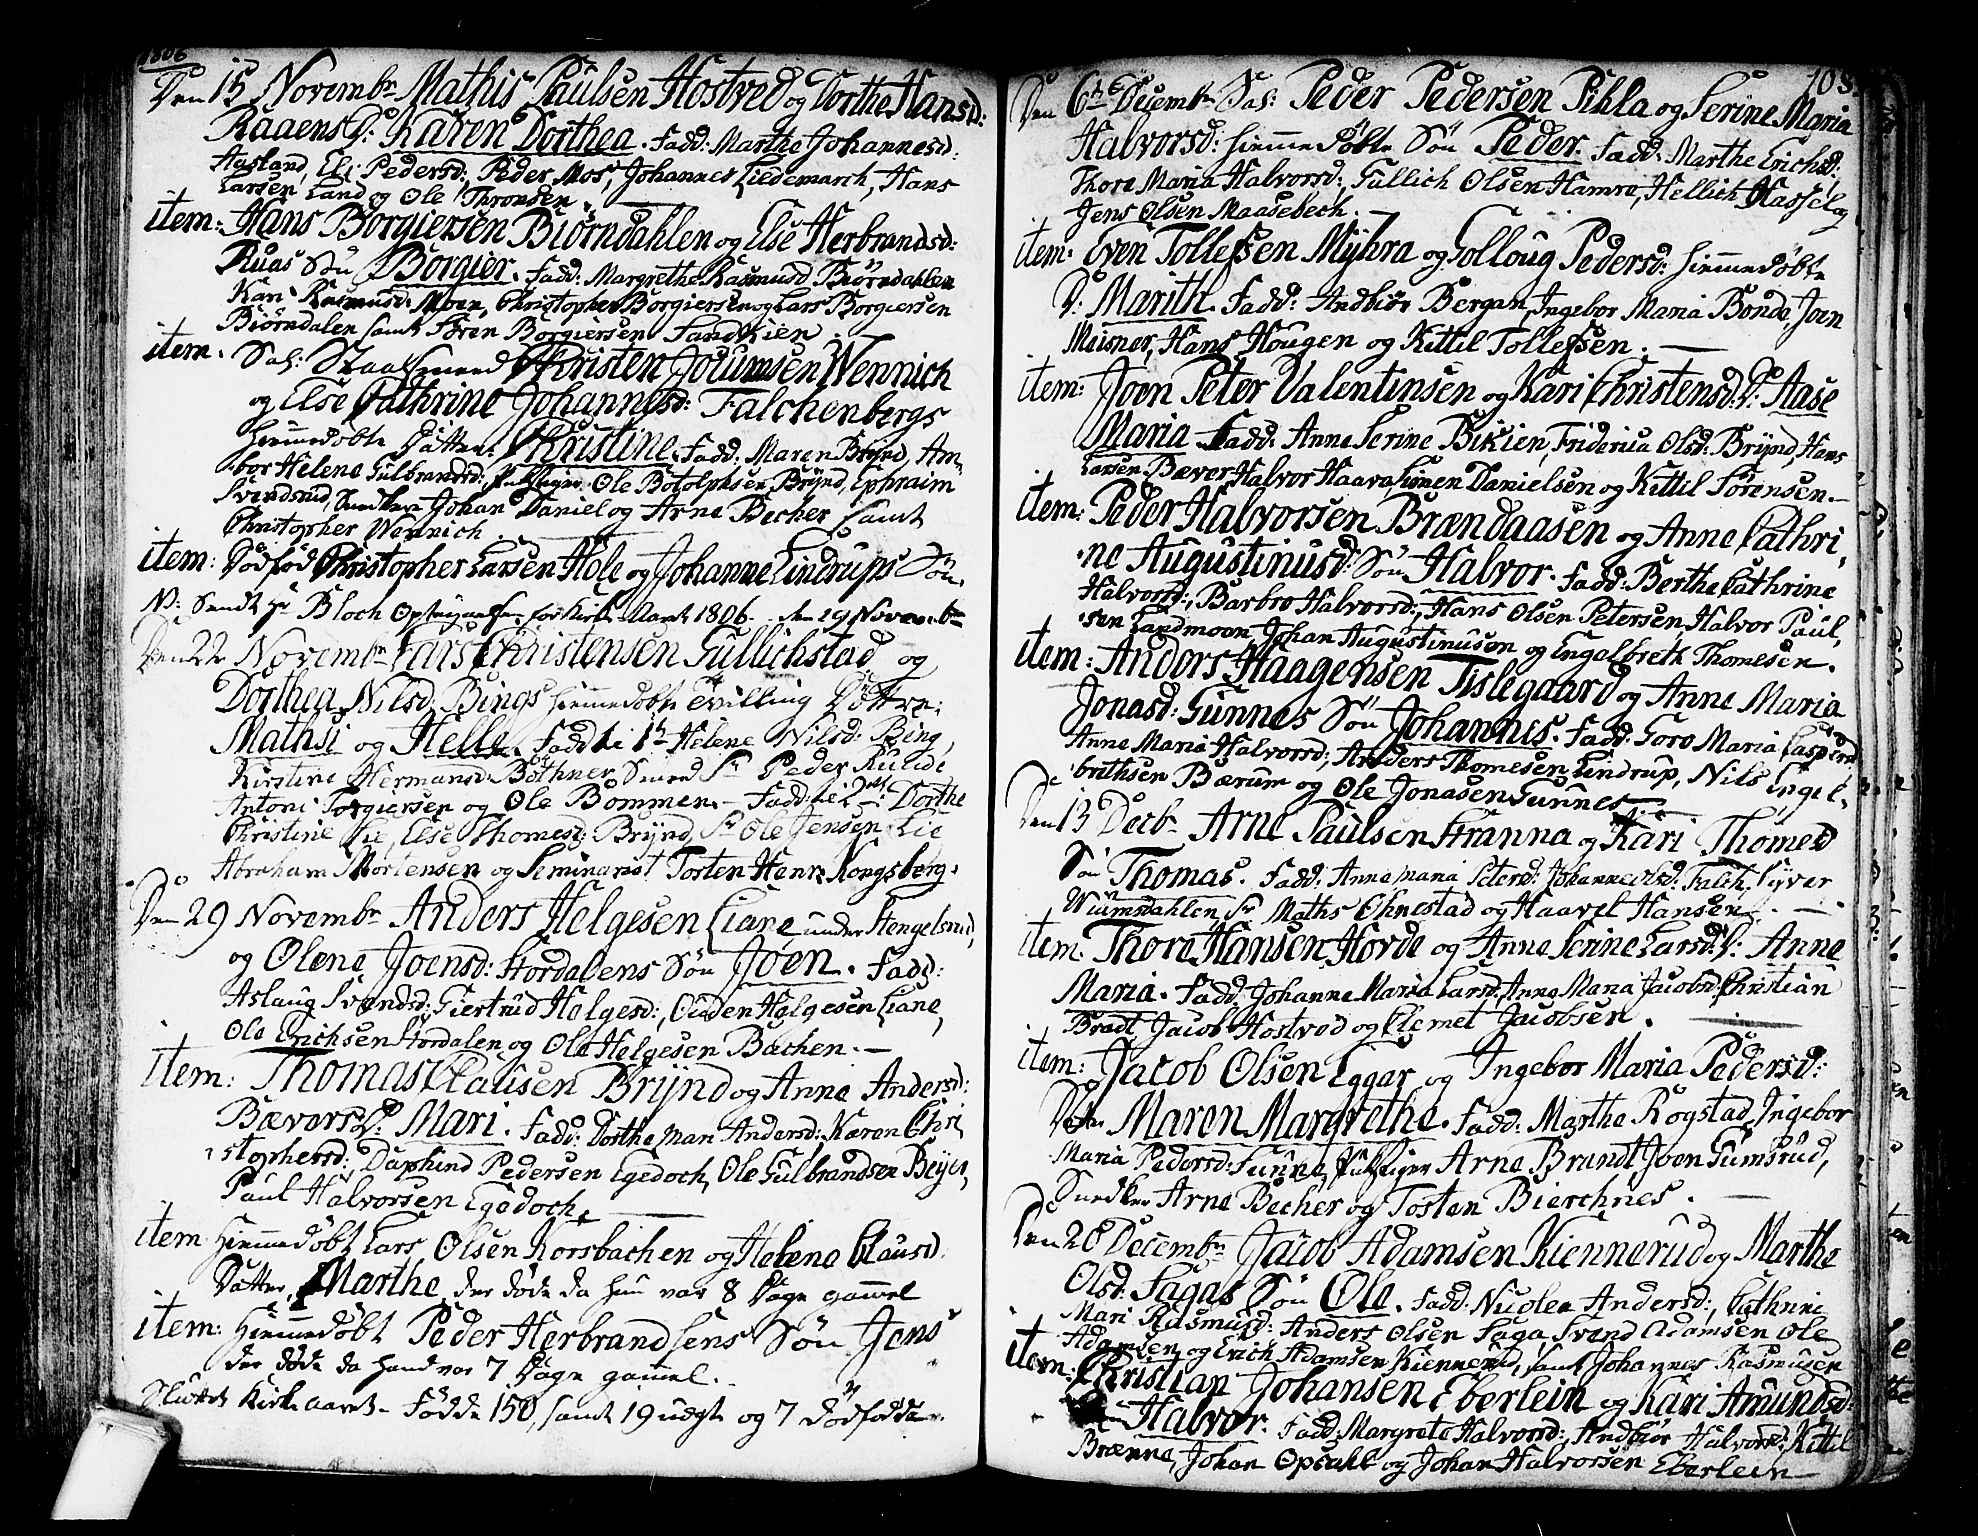 1806
Den 15 Novembr Mathis Paulsen Hostved og Dorthe Hansd:
Raaens D: Karen Dorthea. Fadd: Marthe Johannesd:
Aasland, Eli Pedersd, Peder Mos, Johannes Liedemarch, Hans
Larsen Land og Ole Thronsen.
item: Hans Borgiersen Biørndahlen og Else Herbrandsd:
Ruas Sön Borgier. Fadd: Margrethe Rasmusd Biørndahlen
Kari Rasmusd: Moen, Christopher Borgiersen og Lars Borgiersen
Biörndalen samt Søren Borgiersen Sandkien
item. Sal: Christen Jouumsen Wennich
og Else Cathrine Johannesd: Falchenbergs
hiemmedøbte Datter: Christine. Fadd: Maren Brÿnd, Am-
bor Helene Gulbrandsd: Ole Botolphsen Brÿnd, Ephraim
Svendsrud, Snedker Johan Daniel og Arne Becher samt
Christopher Wennich
item: Dødfød Christopher Larsen Hole og Johanne Lindrups Søn.
N: Sendt Hr Bloch for Kirke Aaret 1806. den 29 Novembr
Den 22de Novembr Lars Christensen Gullichstad og
Dorthea Nilsd Bings hiemmedøbte Tvilling Döttre:
Mathsi og Helle. Fadd: te 1st Helene Nilsd: Bing,
Kirstine Hermansd: Böthner Smed Sr Peder
Antoni Torgiersen og Ole Bommen. - Fadd: te 2den: Dorthe
Christine Lie, Else Thomesd: Brÿnd, Sr Ole Jensen Lie
Abraham Mortensen og Seminarist Torsten Henr. Kongsberg.
Den 29 Novembr Anders Helgesen Liane under Hengelsrud,
og Olene Joensd: Stordalens Søn Joen. Fadd:
Aslaug Svendsd; Giertrud Helgesd:, Ouden Helgesen Liane,
Ole Erichsen Stordalen og Ole Helgesen Bachen. —
item: Thomas Clausen Brÿnd og Anne Andersd:
Bævers D: Mari. Fadd: Dorthe Mari Andersd: Karen Chri
stophersd:, Daphind Pedersen Egedoch, Ole Gulbrandsen Beÿer,
Paul Halvorsen Egedoch.
item hiemmedøbt Lars Olsen Korsbachen og Helene Clausd.
Datter, Marthe, der døde da hun var 8 Dage gammel
item: hiemmedøbt Peder Herbrandsens Søn Jens
der døde da hand var 7 Dage gammel.
Sluttet Kirke Aaret - Födde 150, samt 19 uægte og 7 dödfödde.
108.
Den 6te Decembr Sal: Peder Pedersen Pihla og Serine Maria
Halvorsd: hiemmedøbte Sön Peder. Fadd: Marthe Erichsd:
Thore Maria Halvorsd:, Gullich Olsen Hamre, Hellich Hassel og
Jens Olsen Maasebech.
item: Even Tollefsen Mÿhra og Golloug Pedersd: hiemmedøbte
D: Marith. Fadd: Andbiør Bergan, Ingebor Maria Bonde, Joen
Meisner, Hans Hougen og Kittil Tollefsen.
item: Joen Peter Valentinsen og Kari Christensd: D: Aase
Maria. Fadd: Anne Serine Bikien, Friderica Olsd: Brÿnd, Hans
Larsen Bæver Halvor Haavalsønen Danielsen og Kittil Sørensen.
item: Peder Halvorsen Brændaasen og Anne Cathri,
ne Augustinusd: Søn Halvor. Fadd: Berthe Cathrine
Halvorsd:, Barbro Halvorsd:, Hans Olsen Petersen, Halvor Paul,
sen Landmoen, Johan Augustinusen og Engelbreth Thomesen.
item: Anders Haagensen Tislegaard og Anne Maria
Jonasd: Gunnes Sön Johannes. Fadd: Goro Maria Caspersd
Anne Maria Halvorsd; Anders Thomesen Lindrup, Nils Engel-
brethsen Bærum og Ole Jonasen Gunnes
Den 13 Decbr Arne Paulsen Stranna og Kari Thomesd
Sön Thomas. Fadd: Anne Maria Petersd: Johanne Olsd: Falch, Syver
Wiumsdahlen, Sr Maths Ohnestad og Haavel Hansen.
item: Thore Hansen Horde og Anne Serine Larsd: D: Anne
Maria. Fadd: Johanne Maria Larsd; Anne Maria Jacobsd: Christian
Bradt Jacob Hostved og Clemet Jacobsen.
item: Jacob Olsen Eggar og Ingebor Maria Pedersd:
Datter Maren Margrethe. Fadd: Marthe Rogstad, Ingebor
Maria Pedersd: Funne, Arne Brandt Joen Gumsrud,
Snedker Arne Becher og Tosten Bierchnes.
Den 20 Decembr Jacob Adamsen Kiennerud og Marthe
Olsd: Sagas Sön Ole. Fadd: Nicolea Andersd:, Cathrine
Mari Rasmusd: Anders Olsen Saga, Svend Adamsen Ole
Adamsen og Erich Adamsen Kiennerud, samt Johannes Rasmusen
item: Christian Johansen Eberlein og Kari Amundsd:
Halvor. Fadd: Margrete Halvorsd:, Andbiør Halvorsd: Kittil
Brænne, Johan Opsahl og Johan Halvorssen Eberlein